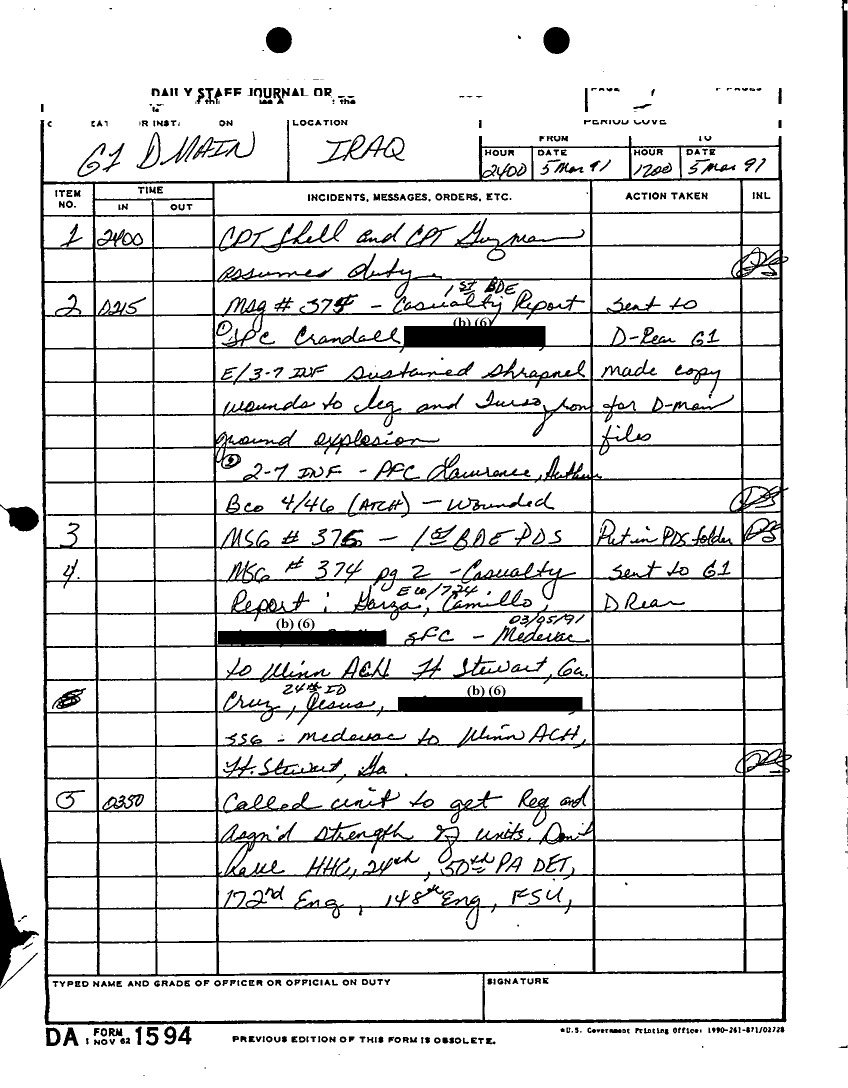 DAILY STAFF JOURNAL OR
PAGE 1
LOCATION
PERIOD COVE
G1 DMAIN
IRAQ
FROM
TO
HOUR DATE HOUR DATE
2400 5 Mar 91 1200 5 Mar 91
ITEM NO. TIME INCIDENTS, MESSAGES, ORDERS, ETC. ACTION TAKEN INL
IN OUT
1 2400 CPT Shell and CPT Guzman
assumed duty
1ST BDE
2 0215 Msg # 374 - Casualty Report sent to
(b) (6)
① SPC Crandall, D-Rear G1
E/3-7 INF sustained shrapnel made copy
wounds to leg and from for D-main
ground explosion files
② 2-7 INF - PFC Lawrence,
Bco 4/46 (ATCH) - Wounded
3 MSG # 375 - 1st BDE PDS Put in PDS folder
4. MSG # 374 pg 2 - Casualty sent to G1
Report : Garza, Camillo, D Rear
(b) (6) 03/05/91
SFC - Medevac
to Winn ACH Ft Stewart, Ga.
24th ID (b) (6)
Cruz, Jesus,
SSG - medevac to Winn ACH,
Ft. Stewart, Ga.
5 0350 Called unit to get Req and
Asgn'd strength of units. Don't
have HHC, 24th, 50th PA DET,
172nd Eng, 148th Eng, FSU,
TYPED NAME AND GRADE OF OFFICER OR OFFICIAL ON DUTY SIGNATURE
DA FORM 1 NOV 62 1594 PREVIOUS EDITION OF THIS FORM IS OBSOLETE.
*U.S. Government Printing Office: 1990-261-871/02728